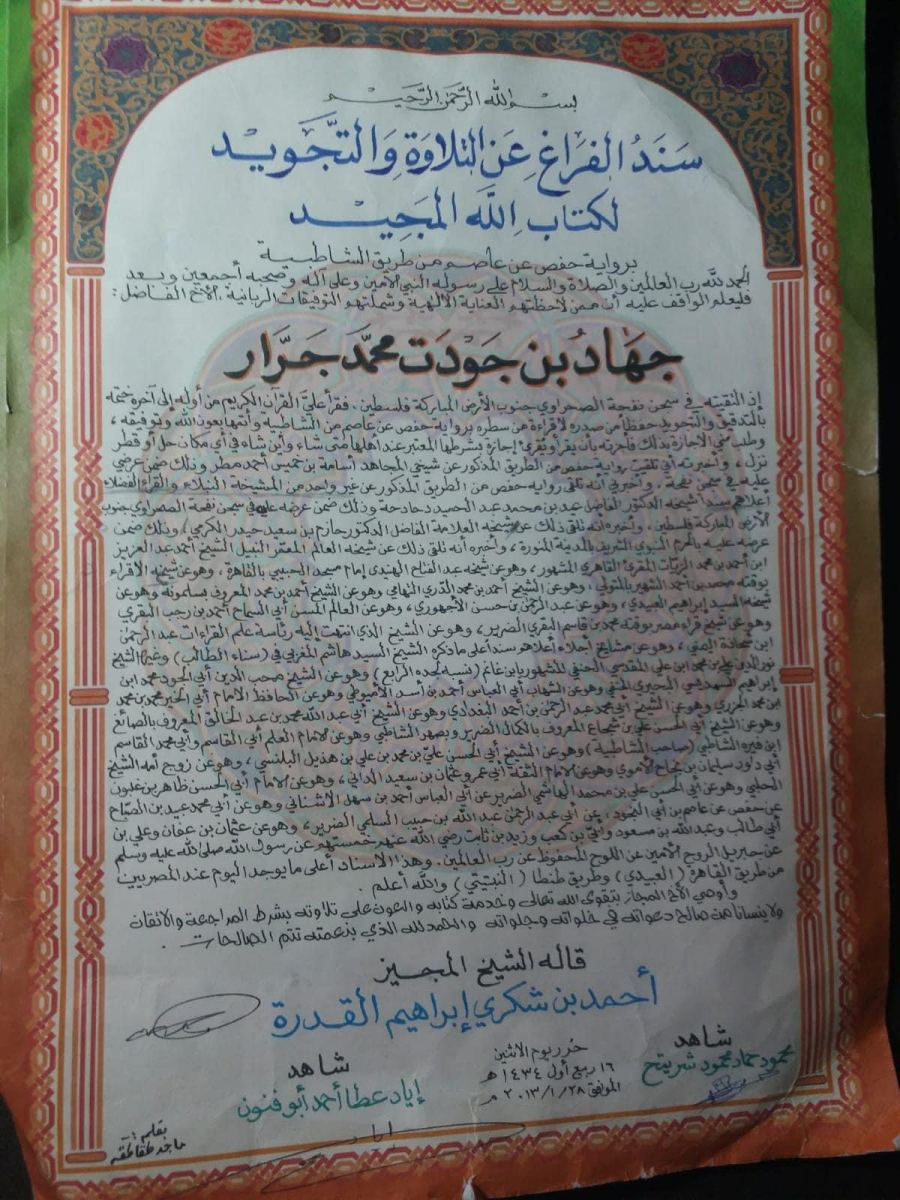 بسم الله الرحمن الرحيم
سَنَدُ الفَرَاغِ عَنِ التلاوَةِ وَالتَّجْوِيد
لكتابِ اللهِ المَجِيد
برواية حفص عن عاصم من طريق الشاطبية
الحمد لله رب العالمين والصلاة والسلام على رسوله النبي الأمين وعلى آله وصحبه أجمعين وبعد
فليعلم الواقف عليه أن ممن لاحظتهم العناية الإلهية وشملتهم التوفيقات الربانية، الأخ الفاضل:
جهادُ بن جودَت محمَّد جَرَّار
إذ التقيته في سجن نفحة الصحراوي جنوب الأرض المباركة فلسطين، فقرأ عليَّ القرآن الكريم من أوله إلى آخره ختمة
بالتدقيق والتجويد حفظاً من صدره لا قراءة من سطره برواية حفص عن عاصم من الشاطبية وأتمها بعون الله وتوفيقه،
وطلب مني الإجازة بذلك فأجزته بأن يقرأ ويُقرئ إجازة بشرطها المعتبر عند أهلها متى شاء وأين شاء في أي مكان حل أو قطر
نزل، وأخبرته أني تلقيت رواية حفص من الطريق المذكور عن شيخي المجاهد أسامة بن خميس أحمد مطر وذلك ضمن عرضي
عليه في سجن نفحة، وأخبرني أنه تلقى رواية حفص من الطريق المذكور عن غير واحد من المشيخة النبلاء والقراء الفضلاء
أعلاهم سنداً شيخه الدكتور الفاضل عبد بن محمد عبد الحميد دحادحة وذلك ضمن عرضه عليه في سجن نفحة الصحراوي جنوب
الأرض المباركة فلسطين، وأخبره أنه تلقى ذلك عن شيخه العلامة الفاضل الدكتور حازم بن سعيد حيدر الكرمي، وذلك ضمن
عرضه عليه بالحرم النبوي الشريف بالمدينة المنورة، وأخبره أنه تلقى ذلك عن شيخه العالم المعمّر النبيل الشيخ أحمد عبد العزيز
ابن أحمد بن محمد الزيات المقرئ القاهري المشهور، وهو عن شيخه عبد الفتاح الهنيدي إمام مسجد الحبيبي بالقاهرة، وهو عن شيخه الإقراء
بوقته محمد بن أحمد الشهير بالمتولي، وهو عن الشيخ أحمد بن محمد الدري التهامي وهو عن الشيخ أحمد بن محمد المعروف بسلمونة وهو عن
شيخه السيد إبراهيم العبيدي، وهو عن عبد الرحمن بن حسن الأجهوري، وهو عن العالم المسن أبي السماح أحمد بن رجب البقري
وهو عن شيخ قراء عصره بوقته محمد بن قاسم البقري الضرير، وهو عن الشيخ الذي انتهت إليه رئاسة علم القراءات عبد الرحمن
ابن شحاذة اليمني، وهو عن مشايخ أجلاء أعلاهم سندا على ما ذكره الشيخ السيد هاشم المغربي في (سناء الطالب) وغيره الشيخ
نور الدين علي بن محمد ابن علي المقدسي الحنفي المشهور بابن غانم (نسبة لجده الرابع)، وهو عن الشيخ محب الدين أبي الجود محمد ابن
إبراهيم السمديسي البحيري الحنفي وهو عن الشهاب أبي العباس أحمد بن أسد الأميوطي وهو عن الحافظ الإمام أبي الخير محمد بن محمد
ابن محمد الجزري وهو عن الشيخ أبي محمد عبد الرحمن بن أحمد البغدادي وهو عن الشيخ أبي عبد الله محمد بن عبد الخالق المعروف بالصائغ
وهو عن الشيخ أبي الحسن علي بن شجاع المعروف بالكمال الضرير وبصهر الشاطبي وهو عن الإمام العلم أبي القاسم وأبي محمد القاسم
ابن فيره الشاطبي (صاحب الشاطبية) وهو عن الشيخ أبي الحسن عليّ بن محمد بن علي بن هذيل البلنسي، وهو عن زوج أمه الشيخ
أبي داود سليمان بن نجاح الأموي وهو عن الإمام الثقة أبي عمرو عثمان بن سعيد الداني، وهو عن الإمام أبي الحسن طاهر بن غلبون
الحلبي وهو عن أبي الحسن علي بن محمد الهاشمي الضرير عن أبي العباس أحمد بن سهل الأشناني وهو عن أبي محمد عبيد بن الصبّاح
عن حفص عن عاصم بن أبي النجود، عن أبي عبد الرحمن عبد الله بن حبيب السلمي الضرير، وهو عن عثمان بن عفان وعلي بن
أبي طالب وعبد الله بن مسعود وأبيّ بن كعب وزيد بن ثابت رضي الله عنهم خمستهم عن رسول الله صلى الله عليه وسلم
عن جبريل الروح الأمين عن اللوح المحفوظ عن رب العالمين. وهذا الإسناد أعلى ما يوجد اليوم عند المصريين
من طريق القاهرة (العبيدي) وطريق طنطا (النبتيتي) والله أعلم.
وأوصي الأخ المجاز بتقوى الله تعالى وخدمة كتابه والعون على تلاوته بشرط المراجعة والإتقان
ولا ينسانا من صالح دعواته في خلواته وجلواته والحمد لله الذي بنعمته تتم الصالحات.
قاله الشيخ المجيز
أحمد بن شكري إبراهيم القدرة
حُرر يوم الاثنين
١٦ ربيع أول ١٤٣٤ هـ
الموافق ٢٠١٣/١/٢٨ م
شاهد
محمود حماد محمود شريتح
شاهد
إياد عطا أحمد أبو فنون
بقلم:
ماجد طقاطقة